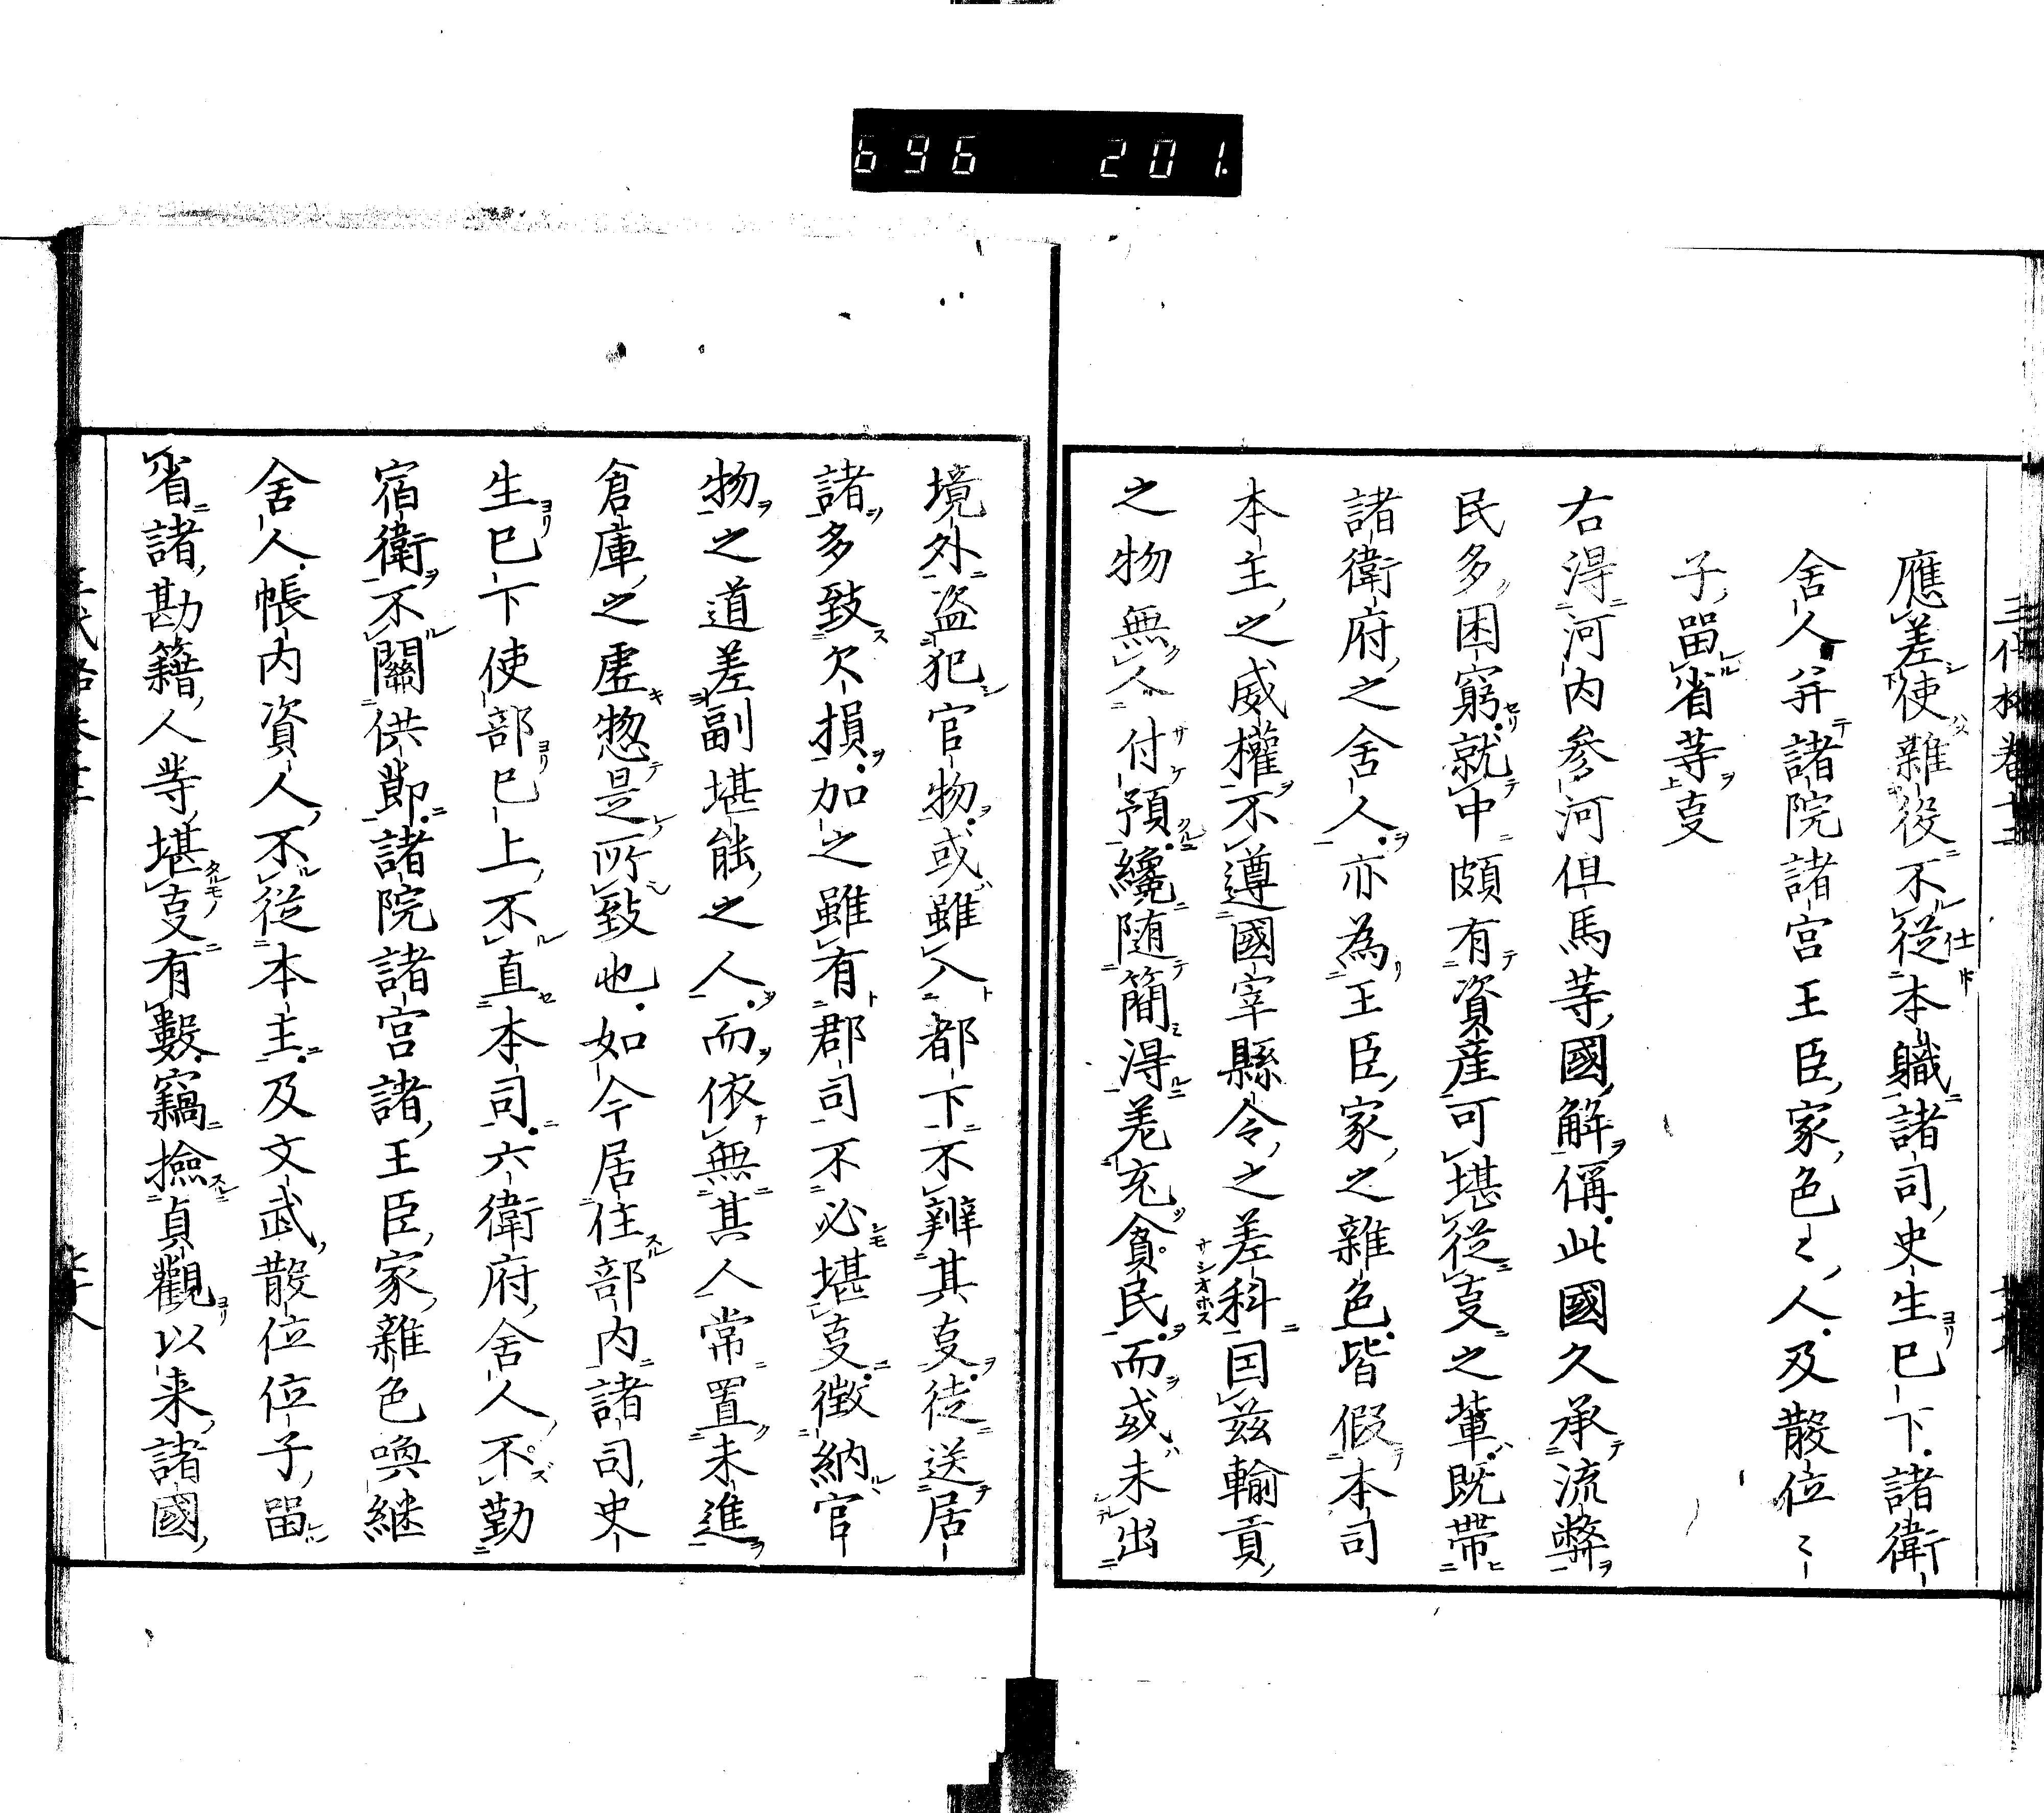 696 201.
應差使雜役不從本職諸司史生已下諸衛
舍人并諸院諸宮王臣家色〻人及散位〻
子畱省等叓
右得河内参河但馬等國解偁此國久承流弊
民多困窮就中頗有資産可堪從叓之輩既帶
諸衛府之舍人亦為王臣家之雜色皆假本司
本主之威權不遵國宰縣令之差科因兹輸貢
之物無人付預纔随簡得差充貧民而或未出
境外盗犯官物或雖入都下不辨其叓徒送居
諸多致欠損加之雖有郡司不必堪叓徴納官
物之道差副堪能之人而依無其人常置未進
倉庫之虚惣是所致也如今居住部内諸司史
生已下使部已上不直本司六衛府舍人不勤
宿衛不關供節諸院諸宮諸王臣家雜色喚継
舍人帳内資人不従本主及文武散位位子畱
省諸勘籍人等堪叓有數竊撿貞觀以来諸國